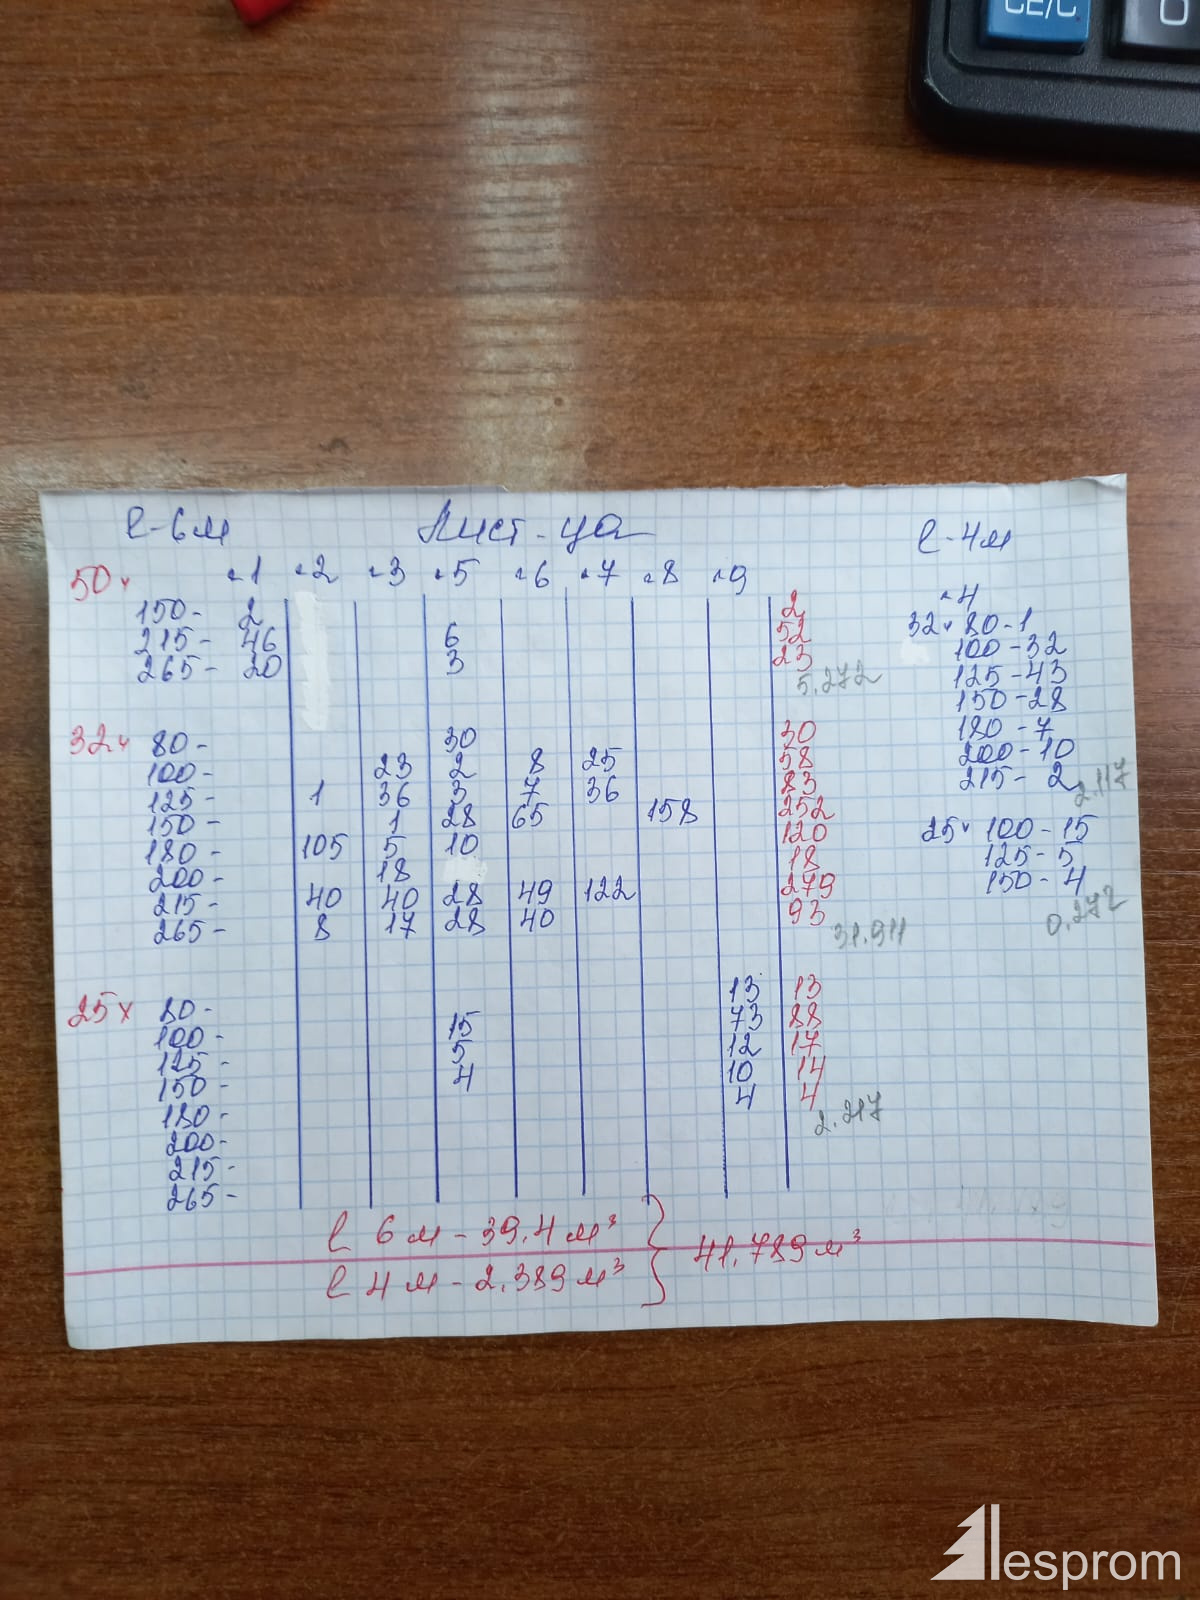 CE/C
0
l-6м Лист-ца l-4м
50× ·1 ·2 ·3 ·5 ·6 ·7 ·8 ·9
150- 2 2
215- 46 6 52
265- 20 3 23
5.272
32× 80- 30 30
100- 23 2 8 25 58
125- 1 36 3 7 36 83
150- 1 28 65 158 252
180- 105 5 10 120
200- 18 18
215- 40 40 28 49 122 279
265- 8 17 28 40 93
31.911
25× 80- 13 13
100- 15 73 88
125- 5 12 17
150- 4 10 14
180- 4 4
2.217
200-
215-
265-
·4
32× 80-1
100-32
125-43
150-28
180-7
200-10
215-2
2.117
25× 100-15
125-5
150-4
0.272
l 6м-39.4м³
l 4м-2.389м³
41.789м³
lesprom